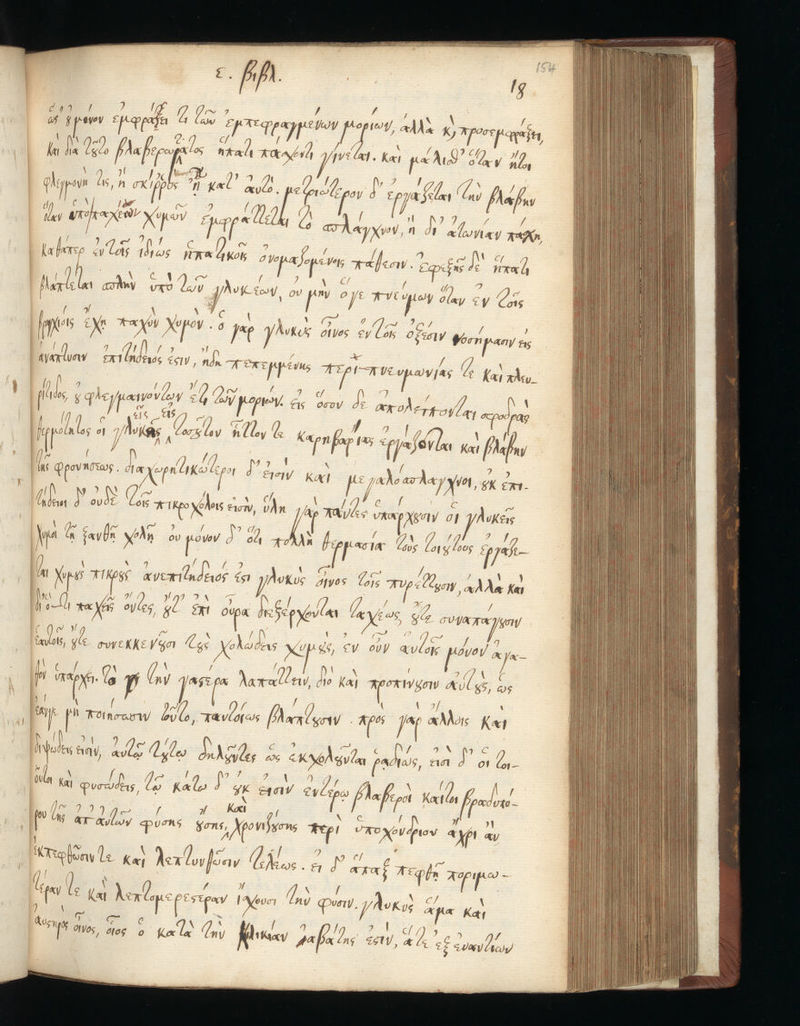 ε. βιβλ.
154
18
ὡς ȣ μόνον ἐμφράξει τι τῶν ἐμπεφραγμένων μορίων, ἀλλὰ κ̀, προσεμφράξει,
καὶ διὰ τȣ͂το βλαβερώτατος ἥπατι πάχοντι γίνεται. καὶ μάλισθ' ὅταν ἤτοι
φλεγμονή τις, ἢ σκίρρος ᾖ κατ' αὐτό. μετριώτερον δ' ἐργάζεται τὴν βλάβην
ὅταν ὑπὸ παχέων χυμῶν ἐμφράττεται τὸ σπλάγχνον, ἢ δι' ἀτωνίαν πάχῃ,
καθάπερ ἐν τοῖς ἰδίως ἡπατικοῖς ὀνομαζομένοις πάθεσιν. ἐφεξῆς δὲ ἥπατι
βλάπτεται σπλὴν ὑπὸ τῶν γλυκέων, οὐ μὴν ὅγε πνεύμων ὅταν ἐν τοῖς
βρογχίοις ἔχῃ παχὺν χυμόν. ὁ γὰρ γλυκὺς οἶνος ἐν τοῖς ὀξέσιν νοσήμασιν εἰς
ἀνάπτυσιν ἐπιτήδειός ἐστιν, ἤδη πεπεμμένης περιπνευμωνίας τε καὶ πλευ-
ρίτιδος, ȣ φλεγμαινόντων ἔτι τῶν μορίων. εἰς ὅσον δὲ ἀπολείπονται σφοδρᾶς
θερμότητος οἱ γλυκεῖς εἰς τοσȣ͂τον ἧττον τε καρηβαρίας ἐργάζονται καὶ βλάβην
τῆς φρονήσεως. διαχωρητικώτεροι δ' εἰσὶν καὶ μεγαλόσπλαγχνοι, ȣκ ἐπι-
τήδειοι δ' οὐδὲ τοῖς πικροχόλοις εἰσὶν, ὕλη γὰρ πάντες ὑπάρχȣσιν οἱ γλυκεῖς
χυμοὶ τῇ ξανθῇ χολῇ οὐ μόνον δ' ὅτι πολλὴ θερμασία τοὺς τοιȣ́τους ἐργάζε-
ται χυμȣ̀ς πικρȣ̀ς ἀνεπιτήδειός ἐστι γλυκὺς οἶνος τοῖς πυρέττȣσιν, ἀλλὰ καὶ
διότι παχεῖς ὄντες, ȣ̓́τ' ἐπὶ οὖρα διεξέρχονται ταχέως, ȣ̓́τε συναπάγȣσιν
ἑαυτοῖς, ȣ̓́τε συνεκκενȣ͂σι τȣ̀ς χολώδεις χυμȣ̀ς, ἐν οὖν αὐτοῖς μόνον ἀγα-
θὸν ὑπάρχει. τὸ τὴν γαστέρα λαπάττειν, διὸ καὶ προπίνȣσιν αὐτȣ̀ς, ὡς
ἐάνγε μὴ ποιήσωσιν τοῦτο, παντοίως βλάπτȣσιν. πρὸς γὰρ ἄλλοις καὶ
διψώδεις εἰσὶν, αὐτῷ τȣ́τῳ δηλȣ͂ντες ὡς ἐκχολȣ͂νται ῥᾳδίως, εἰσὶ δ' οἱ τοι-
οῦτοι καὶ φυσώδεις, τῷ κάτω δ' ȣκ εἰσὶν ἐντέρῳ βλαβεροὶ καίτοι βραδυπό-
ρου τῆς ἀπ' αὐτῶν φύσης ȣ̓́σης, καὶ χρονιζȣ́σης περὶ ὑποχόνδριον ἄχρι ἂν
ἐκπεφθῶσιν τε καὶ λεπτυνθῶσιν τελέως. εἰ δ' ἅπαξ πεφθῇ ποριμω-
τέραν τε καὶ λεπτομερεστέραν ἴχουσι τὴν φύσιν. γλυκὺς ἅμα καὶ
αὐστηρὸς οἶνος, οἷος ὁ κατὰ τὴν κιλικίαν ἀβάτης ἐστὶν, ἅτε ἐξ ἐναντίων